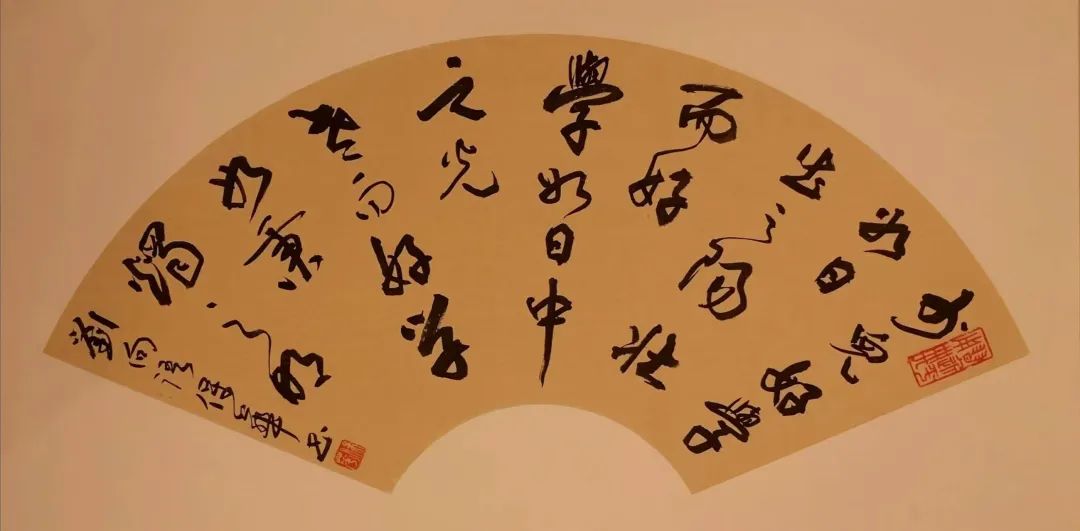 少而好學
如日
出之陽壯
而好
學如日中
之光
老而好学
如秉
燭之明
劉向語 書